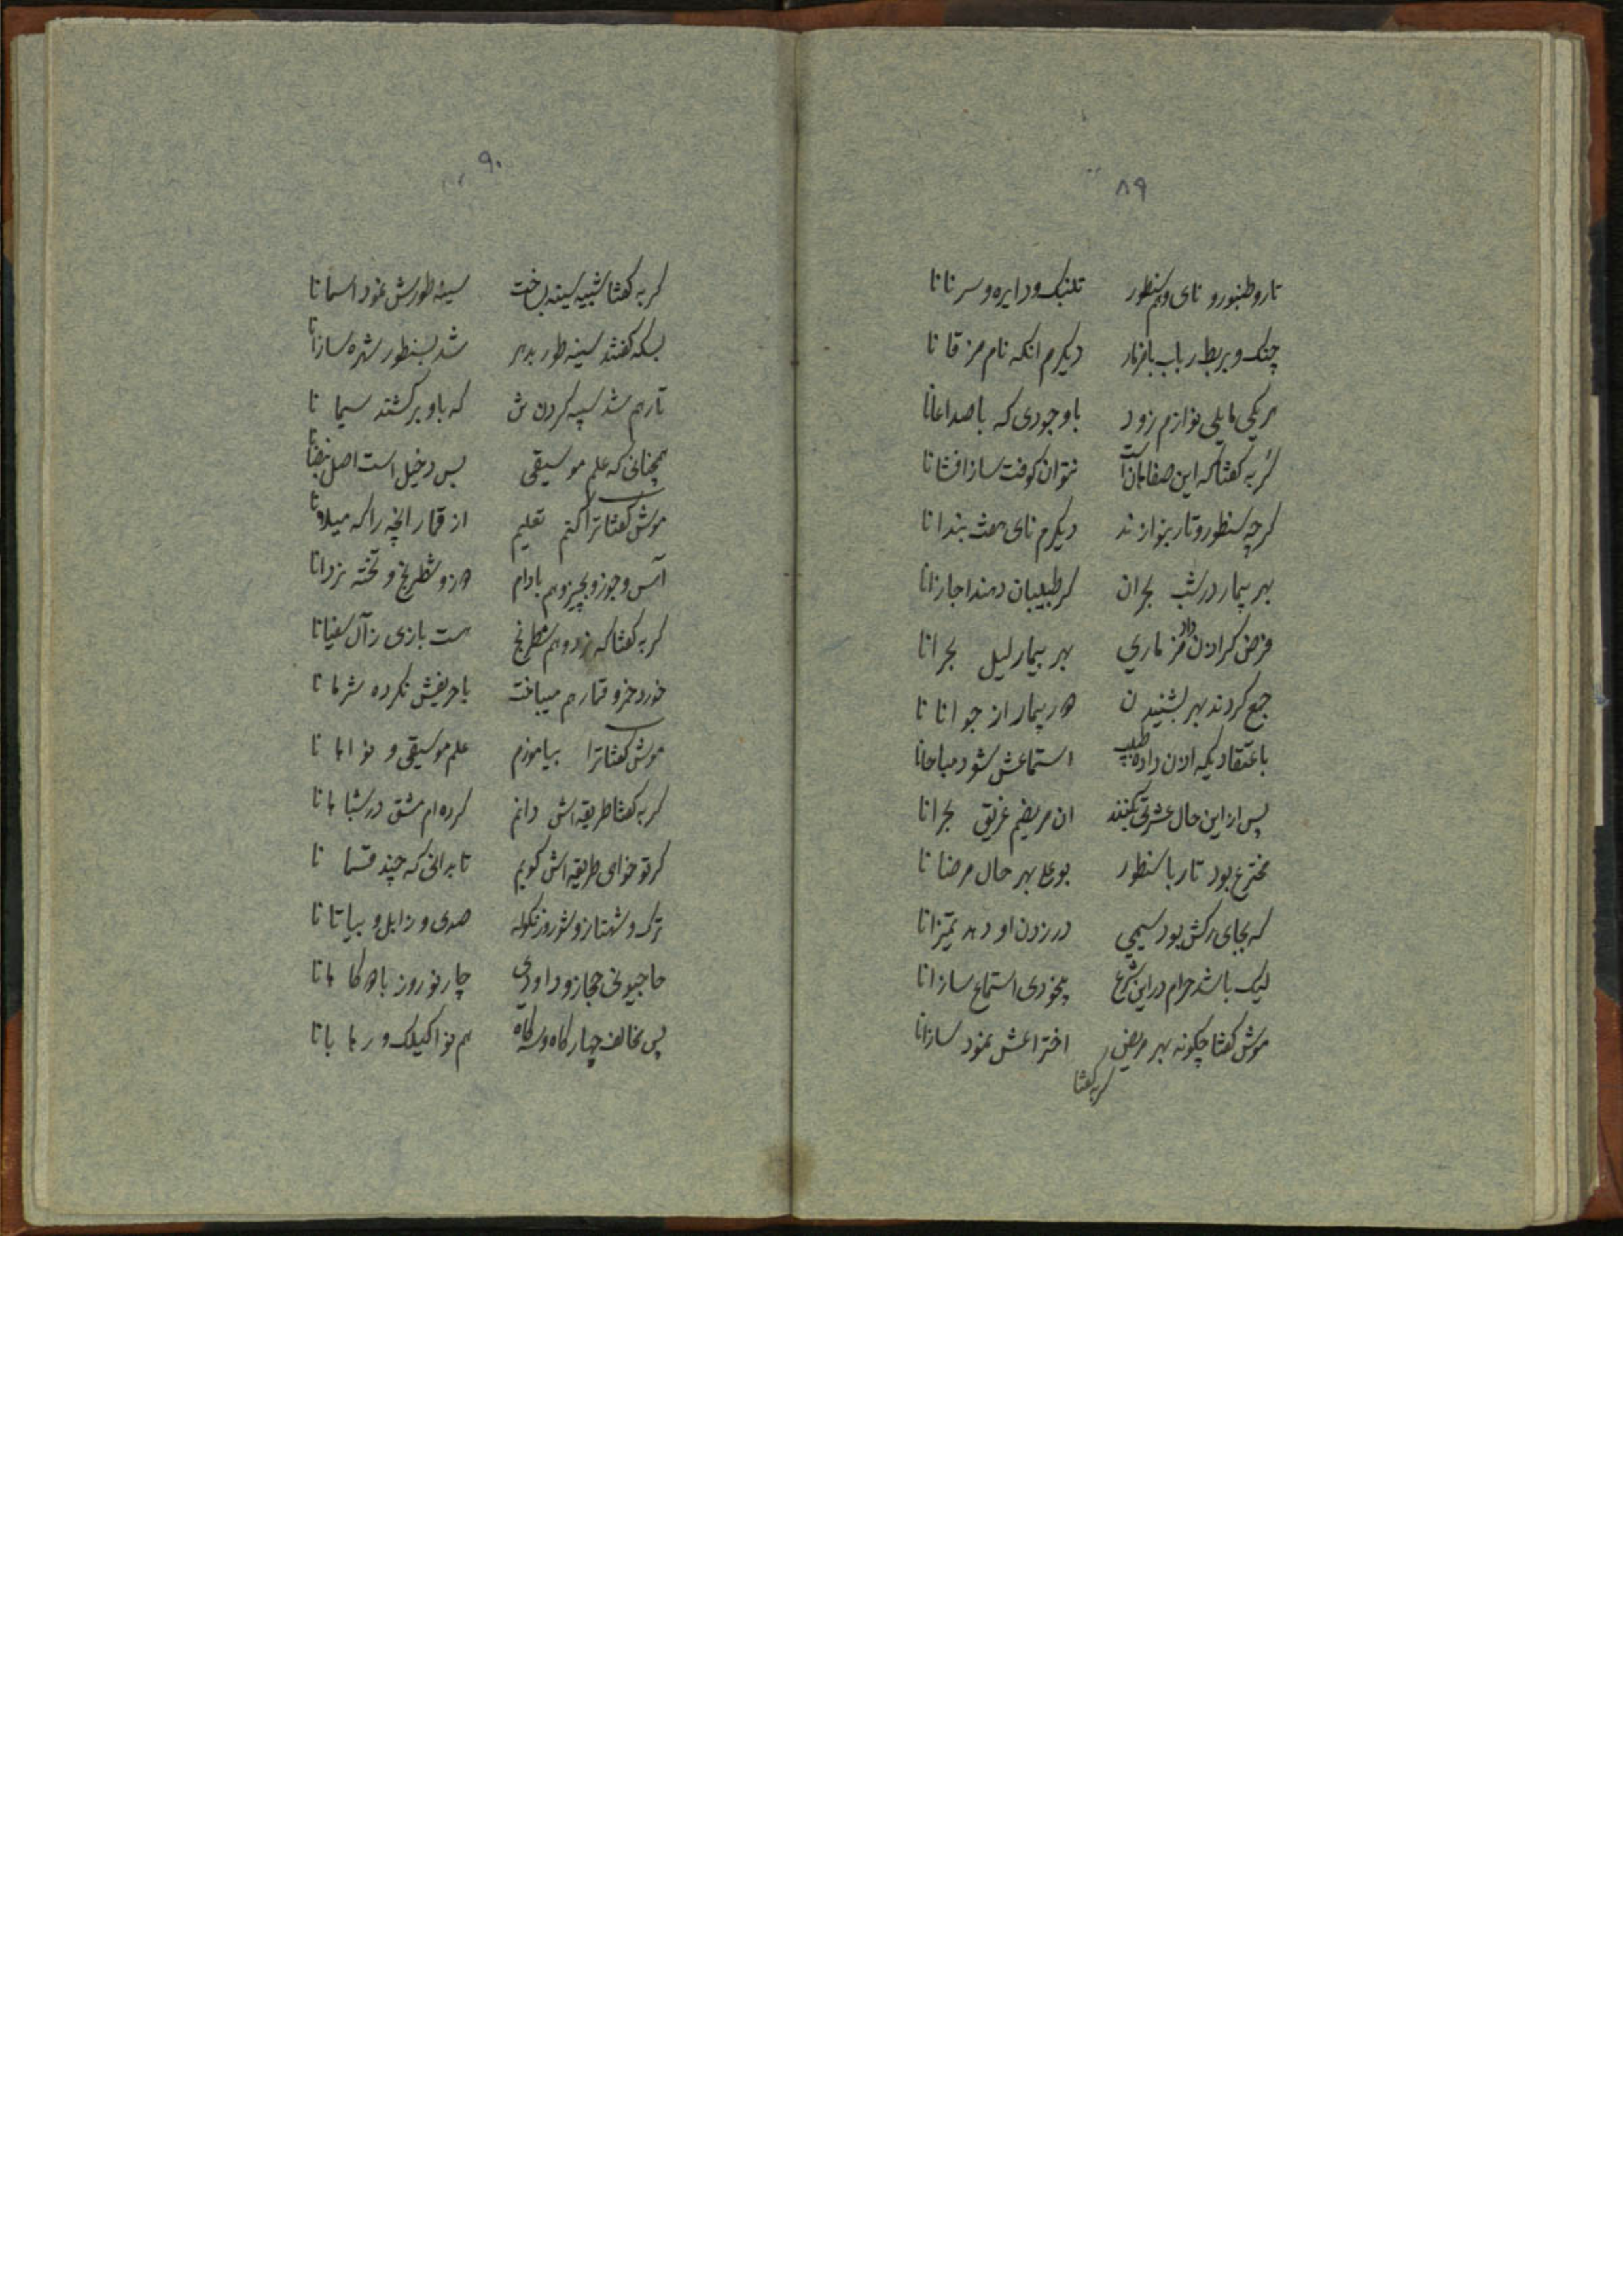 ۸۹
تار و طنبور و نای و هم سنطور تلنبک و دایره و سرنانا
چنک و بربط رباب با مزمار دیکرم انکه نام مزقانا
هر یکی مایلی نوازم زود با وجودی که با صداعانا
کربه کفتا که این صفاهان است نتوان کوفت ساز افشانا
کرچه سنطور و تار بنوازند دیکرم نای هفت بندانا
بهر بیمار در شب بحران کر طبیبان دهند اجازانا
فرض کر اذن داد مزماری بهر بیمار لیل بحرانا
جمع کردند بهر بشنیدن هر بیمار از جوانانا
باعتقادیکه اذن داده طبیب استماعش شود مباحانا
پس از این حال عشرتی بکنند ان مریضیم غریق بحرانا
مخترع بود تار با سنطور بوعلی بهر حال مرضانا
که بجای رکش بود سیمی در زدن او دهد تمیزانا
لیک باشد حرام در این شرع بیخودی استماع سازانا
موش کفتا چکونه بهر مریض اختراعش نمود سازانا
کربه کفتا
۹۰
کربه کفتا شبیه سینه بساخت سینه طورش نمود اسمانا
بسکه کفتند سینه طور بدهر شد بسنطور شهره سازانا
تار هم شد سپه کردنش که باو بر کشند سیمانا
همچنانی که علم موسیقی بس دخیل است اصل نبضانا
موش کفتا ترا کنم تعلیم از قمار انچه را که میلانا
آس و جوز و بچیز و هم بادام و شطرنج و تخته نردانا
کربه کفتا که نرد و هم شطرنج هست بازی ز آل سفیانا
خورد خمر و قمار هم میباخت با حریفش نکرده شرمانا
موش کفتا ترا بیاموزم علم موسیقی و نواهانا
کربه کفتا طریقه اش دانم کرده ام مشق در شبا هانا
کر تو خواهی طریقه اش کویم تا بدانی که چند قسمانا
ترک و شهناز و شور و زنکوله صدی و زابل و بیاتانا
حاجیونی حجاز و داودی چار نوروز با هانا
پس مخالف چهار کاه و سه کاه هم نوا کیلک و رهابانا